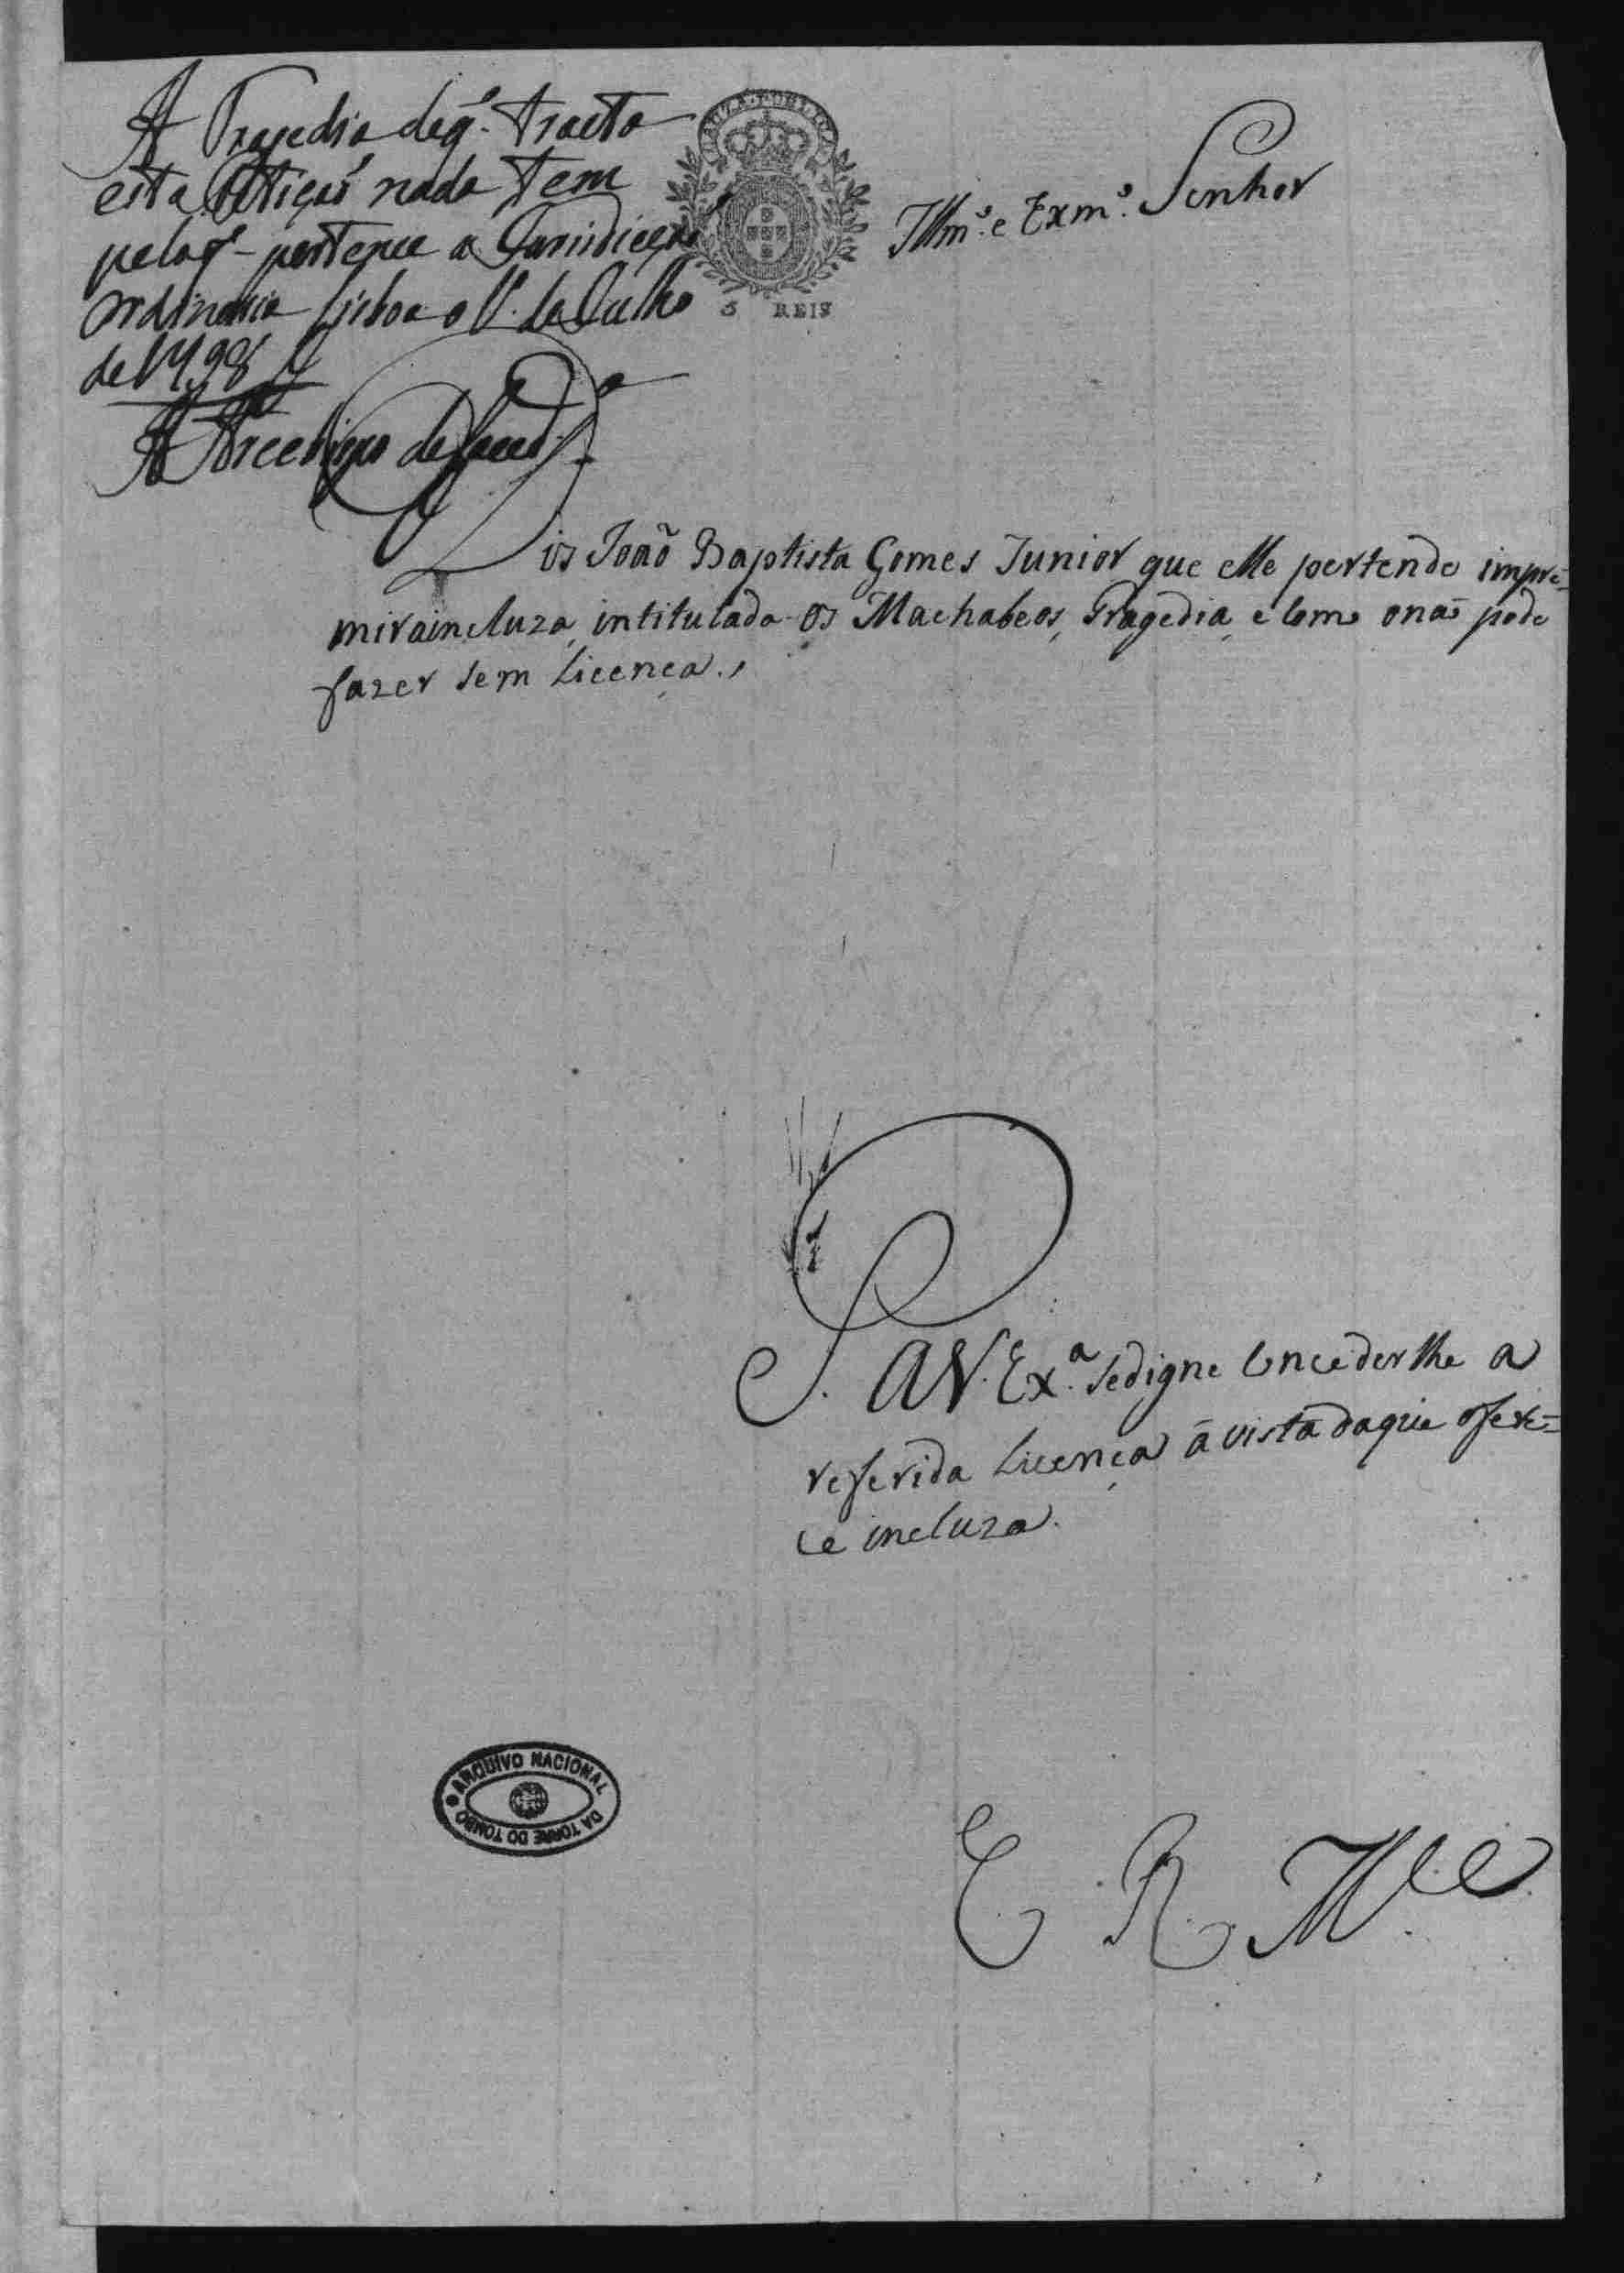 A Tragedia de q̃ tracta
esta Petiçaõ nada tem
pelo q̃ pertence a Jurisdicçaõ
ordinaria Lisboa de Julho
de 1798
5 REIS
Illmº e Exmº Senhor
Diz Joaõ Baptista Gomes Junior que elle pertende impri=
mir a incluza, intitulada Os Machabeos, Tragedia, e como o naõ pode
fazer sem Licença.,
P. A V. Exª. se digne conceder lhe a
referida Licença á vista da que offere=
ce incluza.
ARQUIVO NACIONAL
DA TORRE DO TOMBO
E R Mce